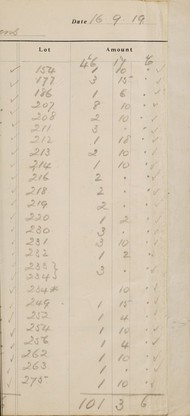 Date 16 9 19
Lot Amount
46 17 6
154 1 10 .
177 3 15 .
186 1 6 .
207 8 10 .
208 2 10 .
211 3 . .
212 1 18 .
213 2 10 .
214 1 10 .
216 2 . .
218 2 . .
219 2 . .
220 1 2 .
230 3 . .
231 3 10 .
232 1 2 .
233 } 3 . .
234
234A 10 .
249 1 15 .
252 1 4 .
254 1 10 .
256 1 4 .
262 1 10 .
263 1 . .
275 1 10 .
101 3 6